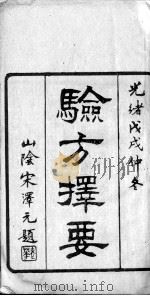 光緒戊戌仲冬
驗方擇要
山陰宋澤元題
http://www.mainbook.com